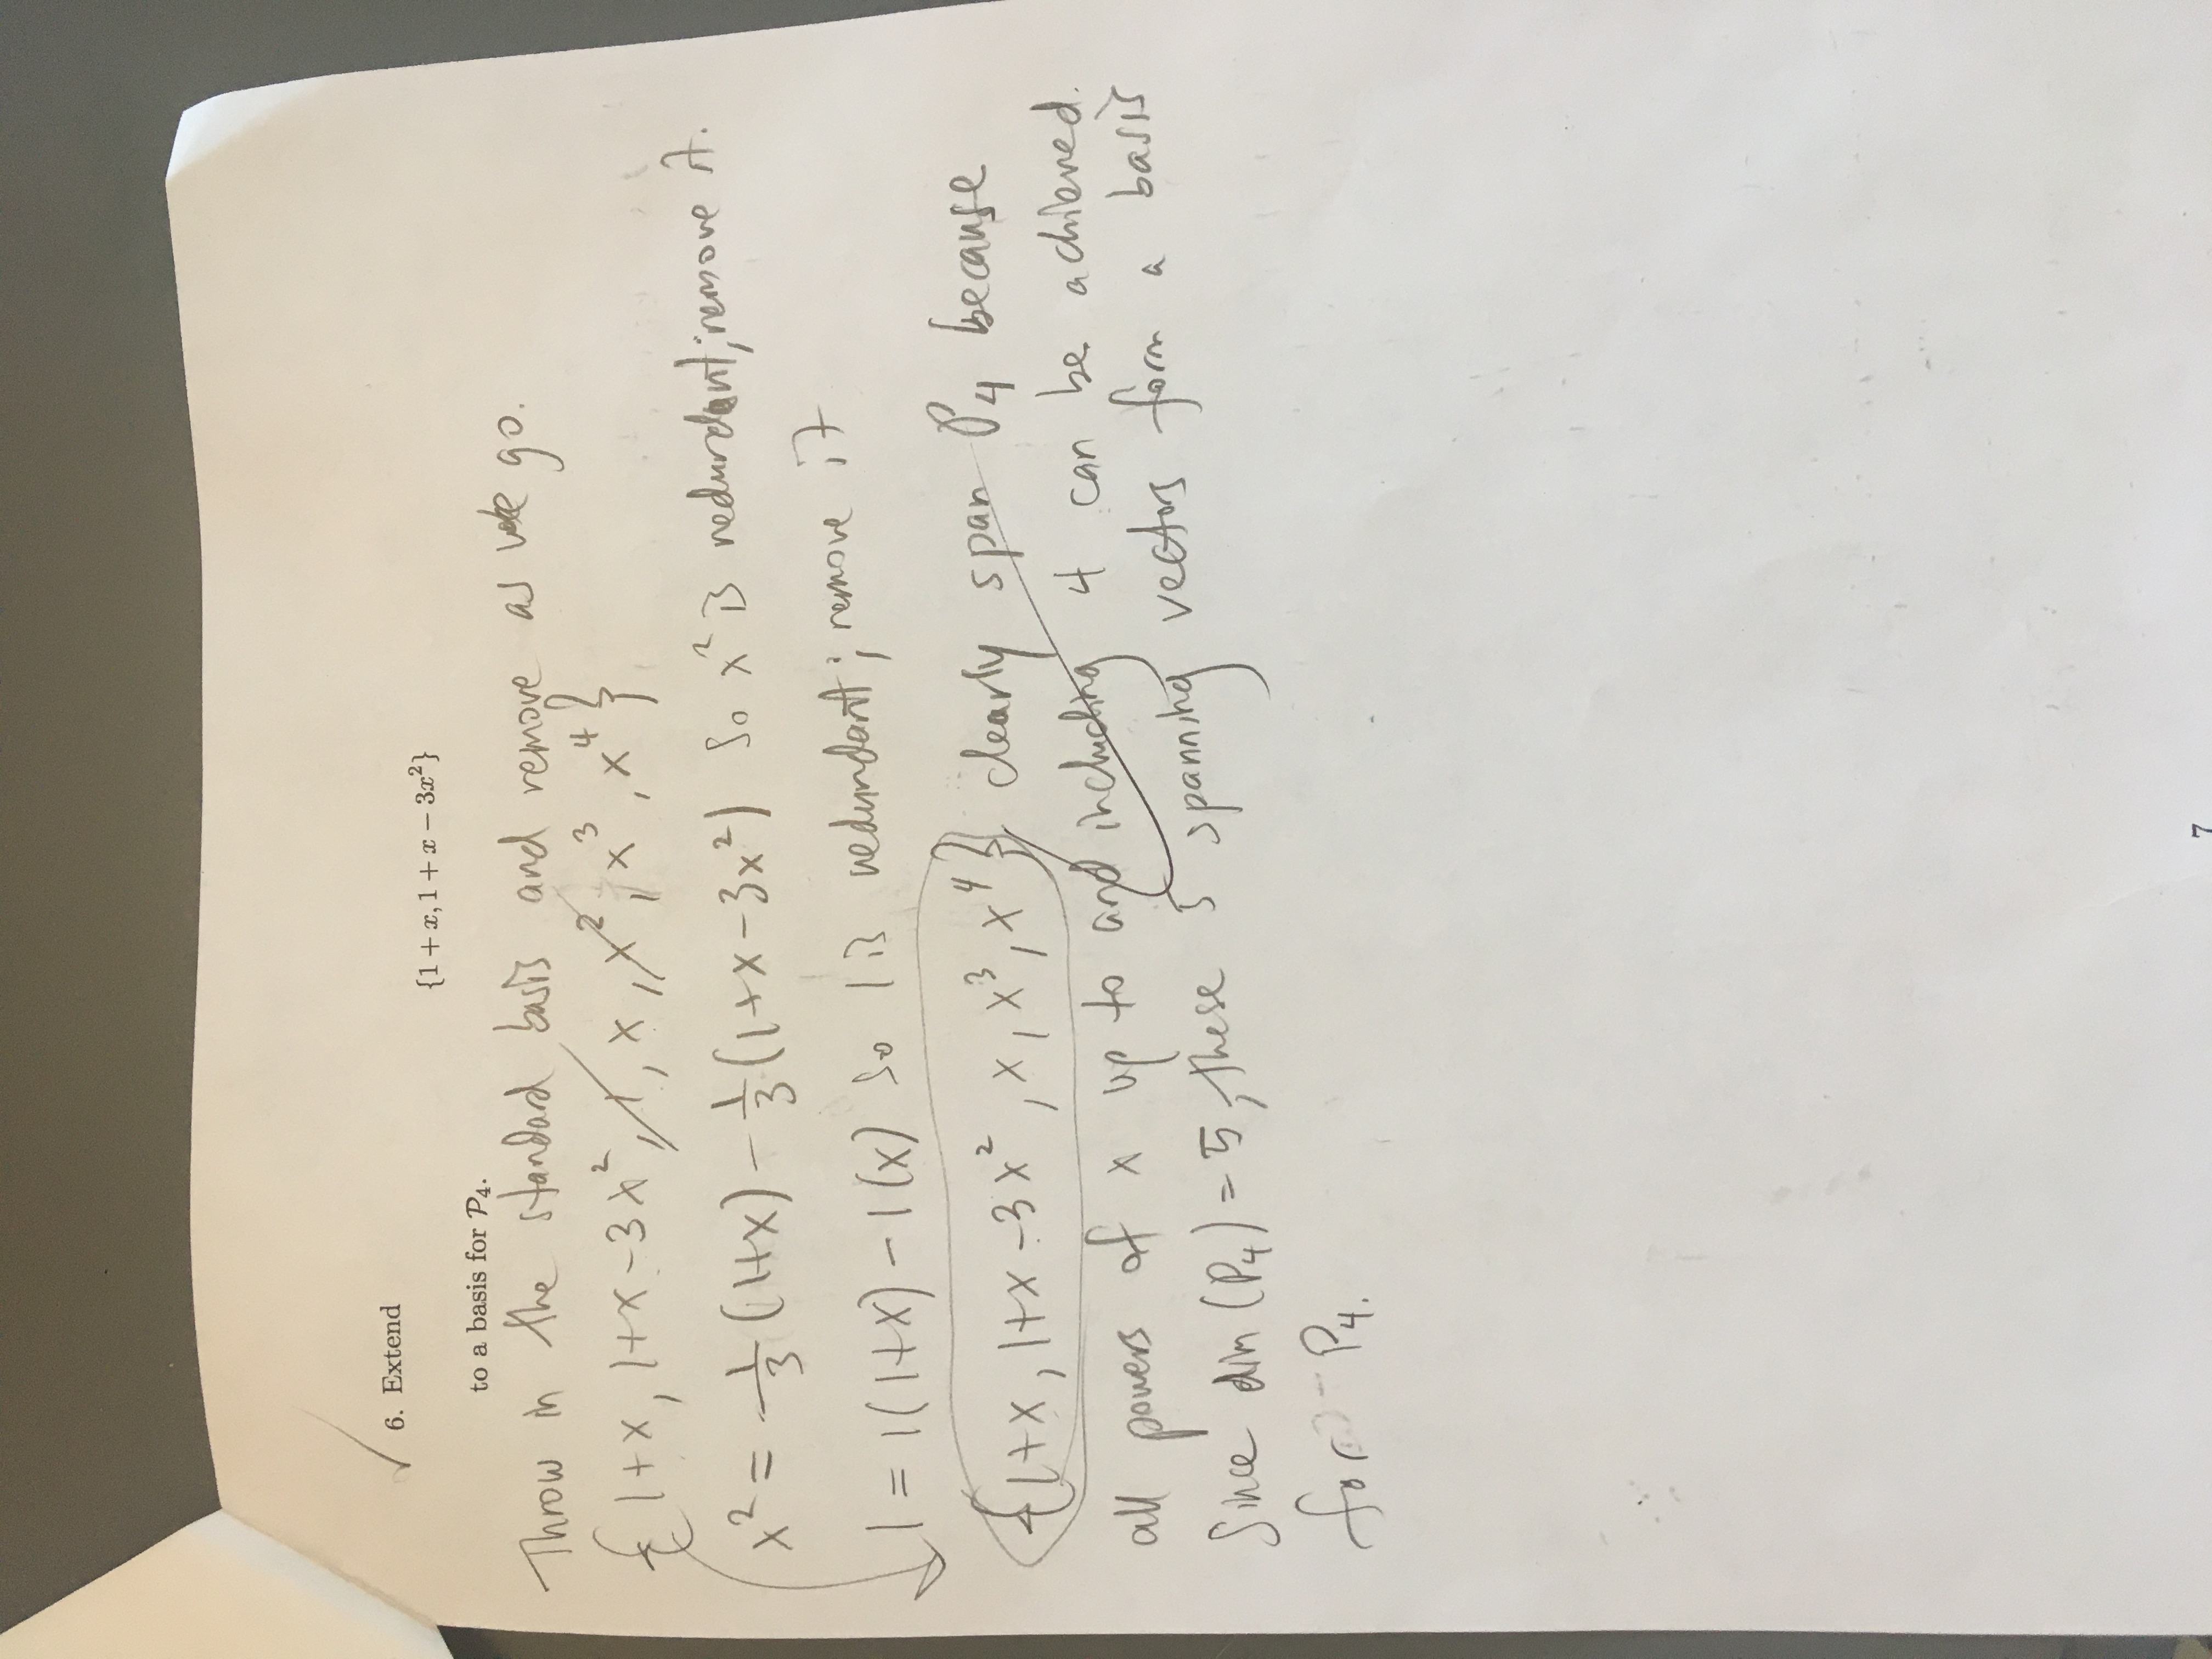 6. Extend
{1 + x, 1 + x − 3x²}
to a basis for P₄.
Throw in the standard basis and remove as we go.
{1+x, 1+x-3x², 1, x, x², x³, x⁴}
x² = 1/3 (1+x) - 1/3 (1+x-3x²) So x² is redundant; remove it.
1 = 1(1+x) - 1(x) So 1 is redundant; remove it
{1+x, 1+x-3x², x, x³, x⁴} clearly span P₄ because
all powers of x up to and including 4 can be achieved.
Since dim (P₄) = 5, these 5 spanning vectors form a basis
for P₄.
7